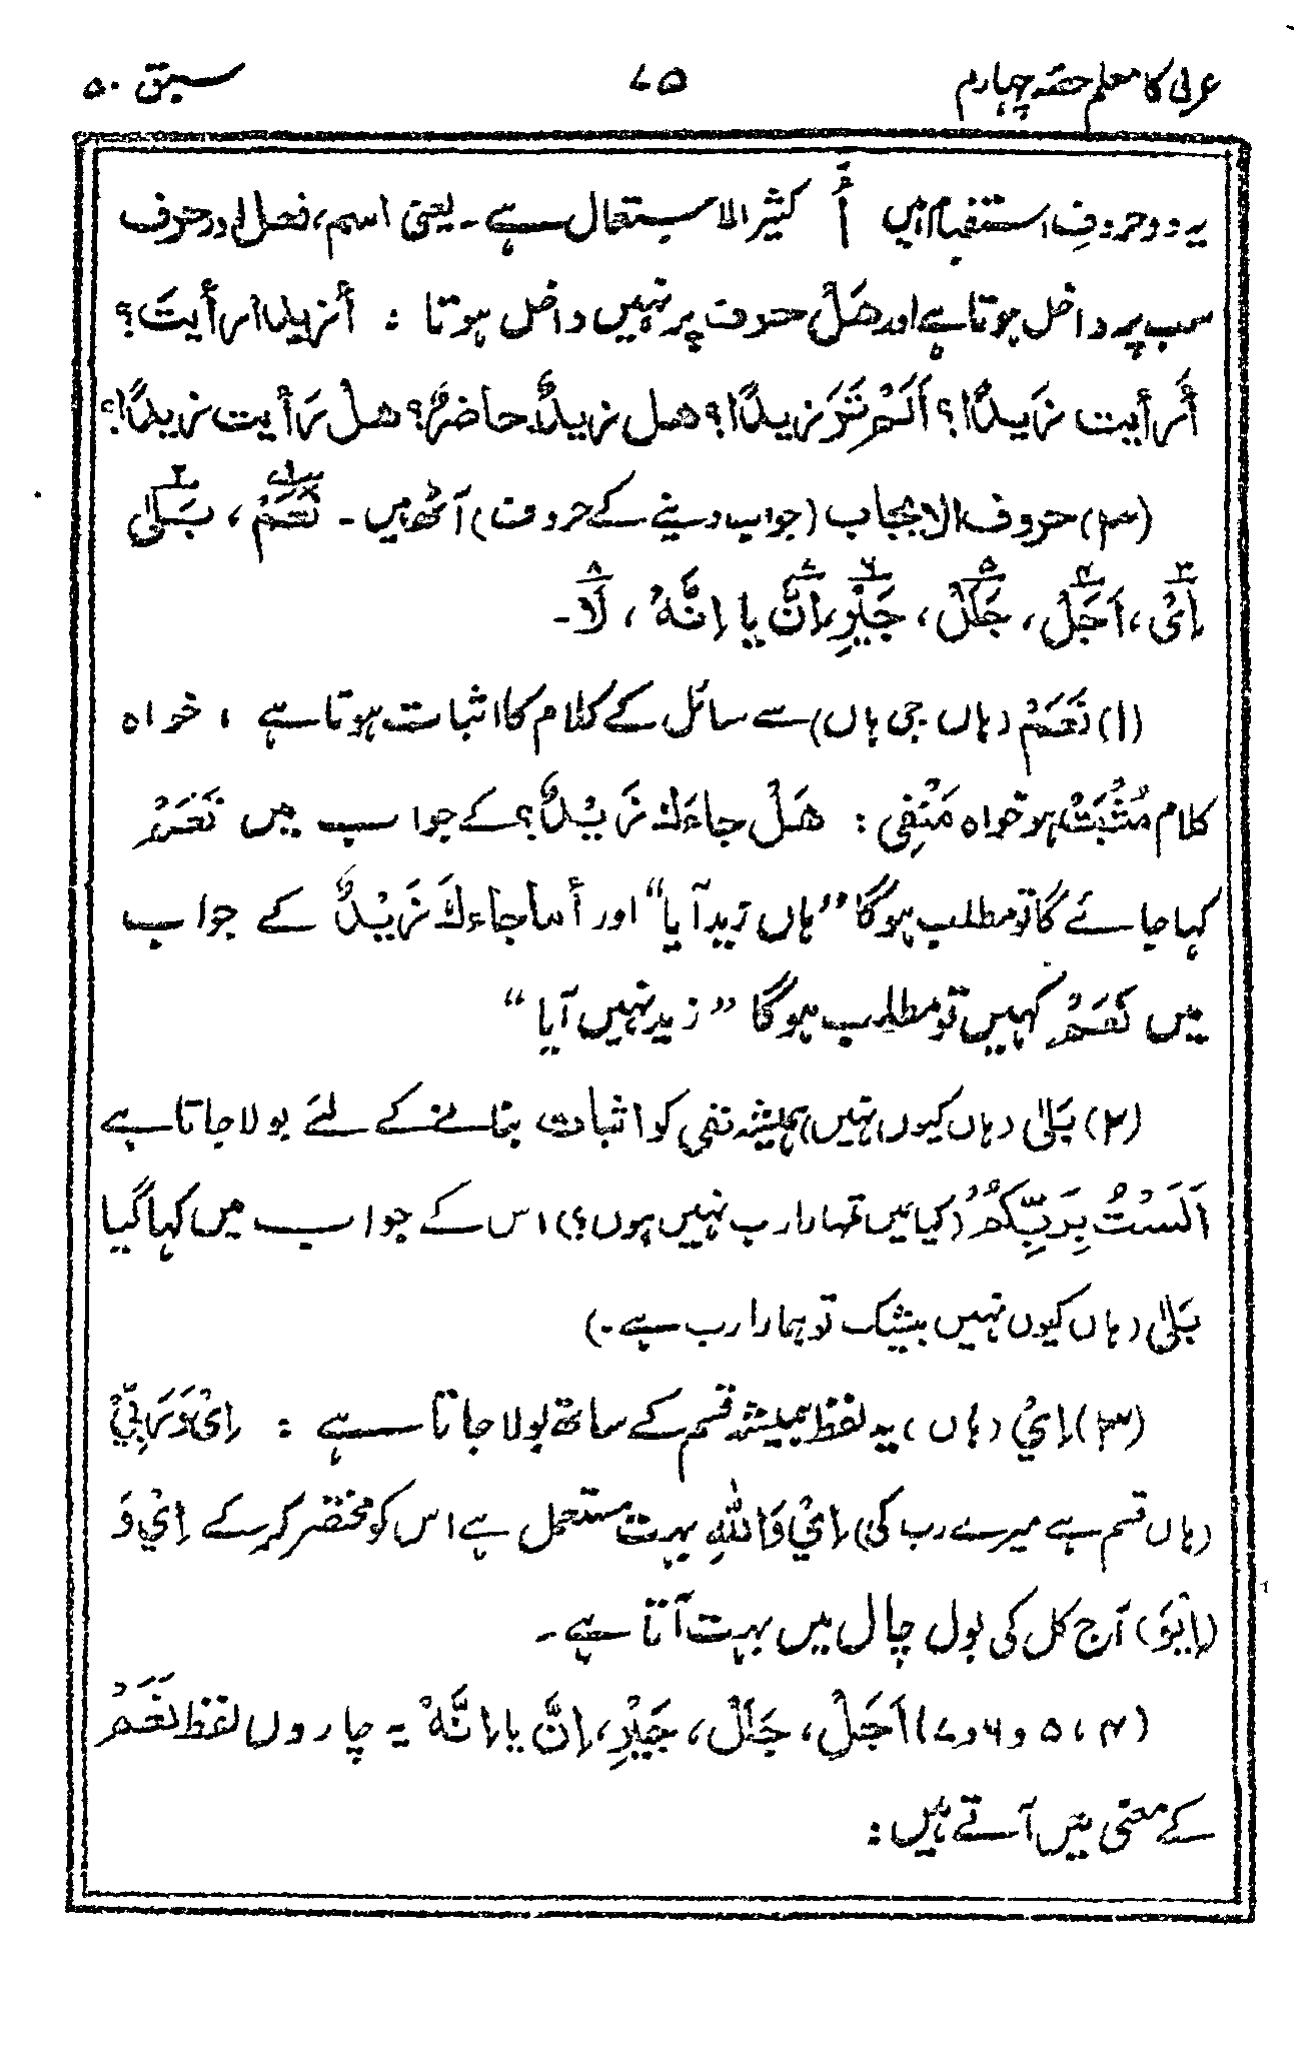 عربی کا معلم حصّہ چہارم ۷۵ سبق ۵۰
یہ دو حروفِ استفہام ہیں أَ کثیر الاستعمال ہے۔ یعنی اسم، فعل اور حرف
سب پر داخل ہوتا ہے اور ھَلْ حرف پر نہیں داخل ہوتا : أزیدًا رأیتَ؟
أَرأیت زَیدًا؟ اَلَمْ تَرَ زیدًا؟ ھل زیدٌ حاضرٌ؟ ھلْ رَأیت زیدًا؟
(۳) حروف الایجاب (جواب دینے کے حروف) آٹھ ہیں۔ نَعَمْ۱، بَلٰی۲
اِیْ۳، اَجَلْ۴، جَلَلْ۵، جَیْرِ۶، اِنَّ۷ یا اِنَّہُ، لَا۸۔
(۱) نَعَمْ (ہاں جی ہاں) سے سائل کے کلام کا اثبات ہوتا ہے ، خواہ
کلام مُثْبَتْ ہو خواہ مَنْفِی : ھَلْ جاءَكَ زَیْدٌ؟ کے جواب میں نَعَمْ
کہا جائے گا تو مطلب ہوگا ”ہاں زید آیا“ اور أما جاءكَ زَیْدٌ کے جواب
میں نَعَمْ کہیں تو مطلب ہوگا ”زید نہیں آیا“
(۲) بَلٰی (ہاں کیوں نہیں) ہمیشہ نفی کو اثبات بنانے کے لئے بولا جاتا ہے
اَلَسْتُ بِرَبِّکُمْ (کیا میں تمہارا رب نہیں ہوں؟) اس کے جواب میں کہا گیا
بَلٰی (ہاں کیوں نہیں بیشک تو ہمارا رب ہے۔)
(۳) اِیْ (ہاں) یہ لفظ ہمیشہ قسم کے ساتھ بولا جاتا ہے : اِیْ وَرَبِّیْ
(ہاں قسم ہے میرے رب کی) اِیْ وَاللهِ بہت مستعمل ہے اس کو مختصر کر کے اِیْ وَ
(اِیْوَ) آج کل کی بول چال میں بہت آتا ہے۔
(۴، ۵ و ۶ و ۷) اَجَلْ، جَلَلْ، جَیْرِ، اِنَّ یا اِنَّہُ یہ چاروں لفظ نَعَمْ
کے معنی میں آتے ہیں :